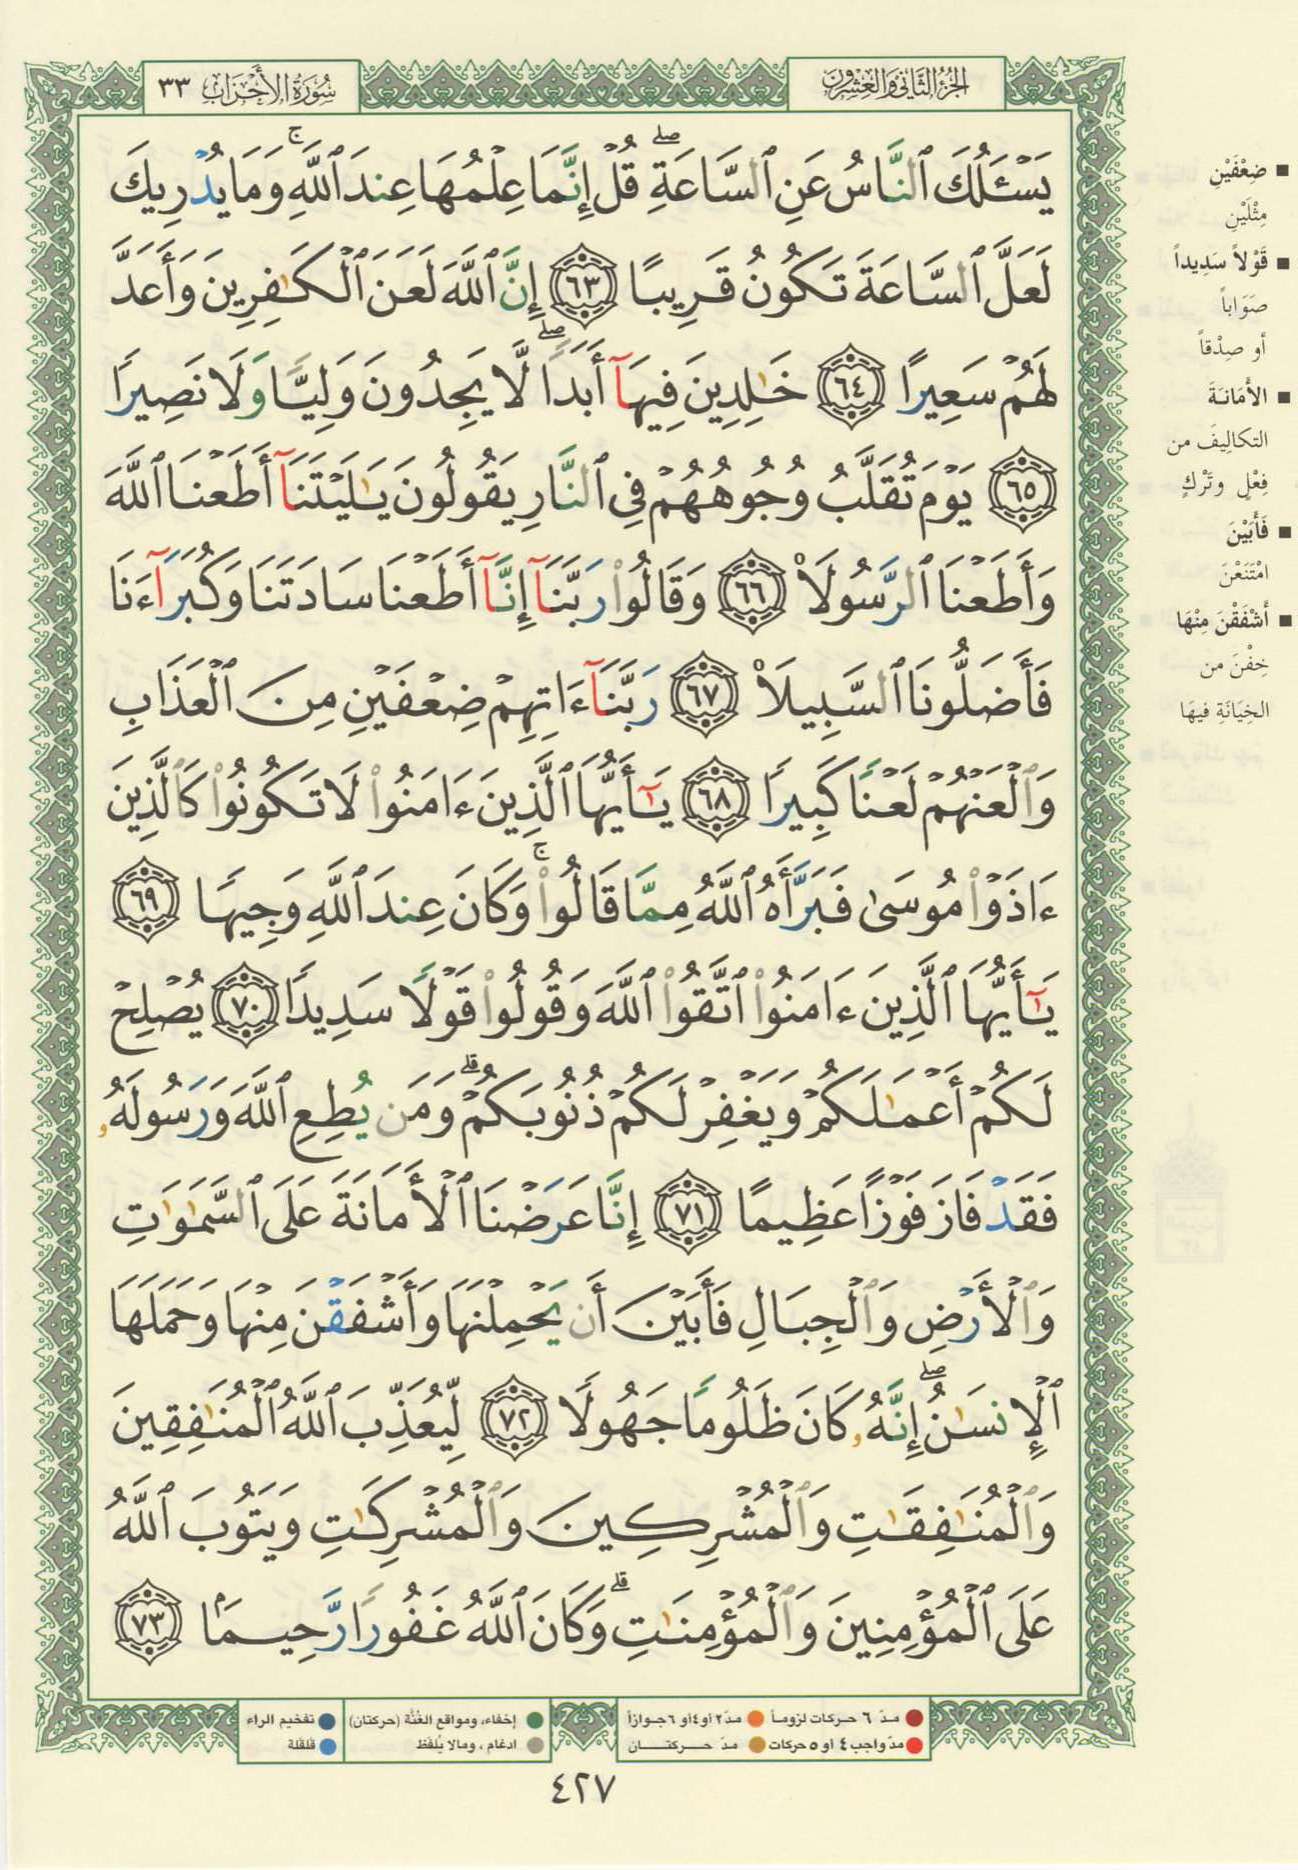 الجزء الثاني والعشرون
سُورَةُ الأَحْزَاب ٣٣
يَسْـَٔلُكَ ٱلنَّاسُ عَنِ ٱلسَّاعَةِ ۖ قُلْ إِنَّمَا عِلْمُهَا عِندَ ٱللَّهِ ۚ وَمَا يُدْرِيكَ
لَعَلَّ ٱلسَّاعَةَ تَكُونُ قَرِيبًا ٦٣ إِنَّ ٱللَّهَ لَعَنَ ٱلْكَـٰفِرِينَ وَأَعَدَّ
لَهُمْ سَعِيرًا ٦٤ خَـٰلِدِينَ فِيهَآ أَبَدًا ۖ لَّا يَجِدُونَ وَلِيًّا وَلَا نَصِيرًا
٦٥ يَوْمَ تُقَلَّبُ وُجُوهُهُمْ فِى ٱلنَّارِ يَقُولُونَ يَـٰلَيْتَنَآ أَطَعْنَا ٱللَّهَ
وَأَطَعْنَا ٱلرَّسُولَا۠ ٦٦ وَقَالُوا۟ رَبَّنَآ إِنَّآ أَطَعْنَا سَادَتَنَا وَكُبَرَآءَنَا
فَأَضَلُّونَا ٱلسَّبِيلَا۠ ٦٧ رَبَّنَآ ءَاتِهِمْ ضِعْفَيْنِ مِنَ ٱلْعَذَابِ
وَٱلْعَنْهُمْ لَعْنًا كَبِيرًا ٦٨ يَـٰٓأَيُّهَا ٱلَّذِينَ ءَامَنُوا۟ لَا تَكُونُوا۟ كَٱلَّذِينَ
ءَاذَوْا۟ مُوسَىٰ فَبَرَّأَهُ ٱللَّهُ مِمَّا قَالُوا۟ ۚ وَكَانَ عِندَ ٱللَّهِ وَجِيهًا ٦٩
يَـٰٓأَيُّهَا ٱلَّذِينَ ءَامَنُوا۟ ٱتَّقُوا۟ ٱللَّهَ وَقُولُوا۟ قَوْلًا سَدِيدًا ٧٠ يُصْلِحْ
لَكُمْ أَعْمَـٰلَكُمْ وَيَغْفِرْ لَكُمْ ذُنُوبَكُمْ ۗ وَمَن يُطِعِ ٱللَّهَ وَرَسُولَهُۥ
فَقَدْ فَازَ فَوْزًا عَظِيمًا ٧١ إِنَّا عَرَضْنَا ٱلْأَمَانَةَ عَلَى ٱلسَّمَـٰوَٰتِ
وَٱلْأَرْضِ وَٱلْجِبَالِ فَأَبَيْنَ أَن يَحْمِلْنَهَا وَأَشْفَقْنَ مِنْهَا وَحَمَلَهَا
ٱلْإِنسَـٰنُ ۖ إِنَّهُۥ كَانَ ظَلُومًا جَهُولًا ٧٢ لِّيُعَذِّبَ ٱللَّهُ ٱلْمُنَـٰفِقِينَ
وَٱلْمُنَـٰفِقَـٰتِ وَٱلْمُشْرِكِينَ وَٱلْمُشْرِكَـٰتِ وَيَتُوبَ ٱللَّهُ
عَلَى ٱلْمُؤْمِنِينَ وَٱلْمُؤْمِنَـٰتِ ۗ وَكَانَ ٱللَّهُ غَفُورًا رَّحِيمًۢا ٧٣
■ ضِعْفَيْنِ
مِثْلَيْنِ
■ قَوْلاً سَدِيداً
صَوَاباً
أو صِدْقاً
■ الأَمَانَةَ
التكالِيفَ من
فِعْلٍ وتَرْكٍ
■ فَأَبَيْنَ
امْتَنَعْنَ
■ أَشْفَقْنَ مِنْهَا
خِفْنَ من
الخِيَانَةِ فيهَا
مدّ ٦ حركات لزوماً مدّ ٢ أو ٤ أو ٦ جوازاً
مدّ واجب ٤ أو ٥ حركات مدّ حركتان
إخفاء، ومواقع الغُنَّة (حركتان) تفخيم الراء
ادغام، ومالا يُلفَظ قلقلة
٤٢٧